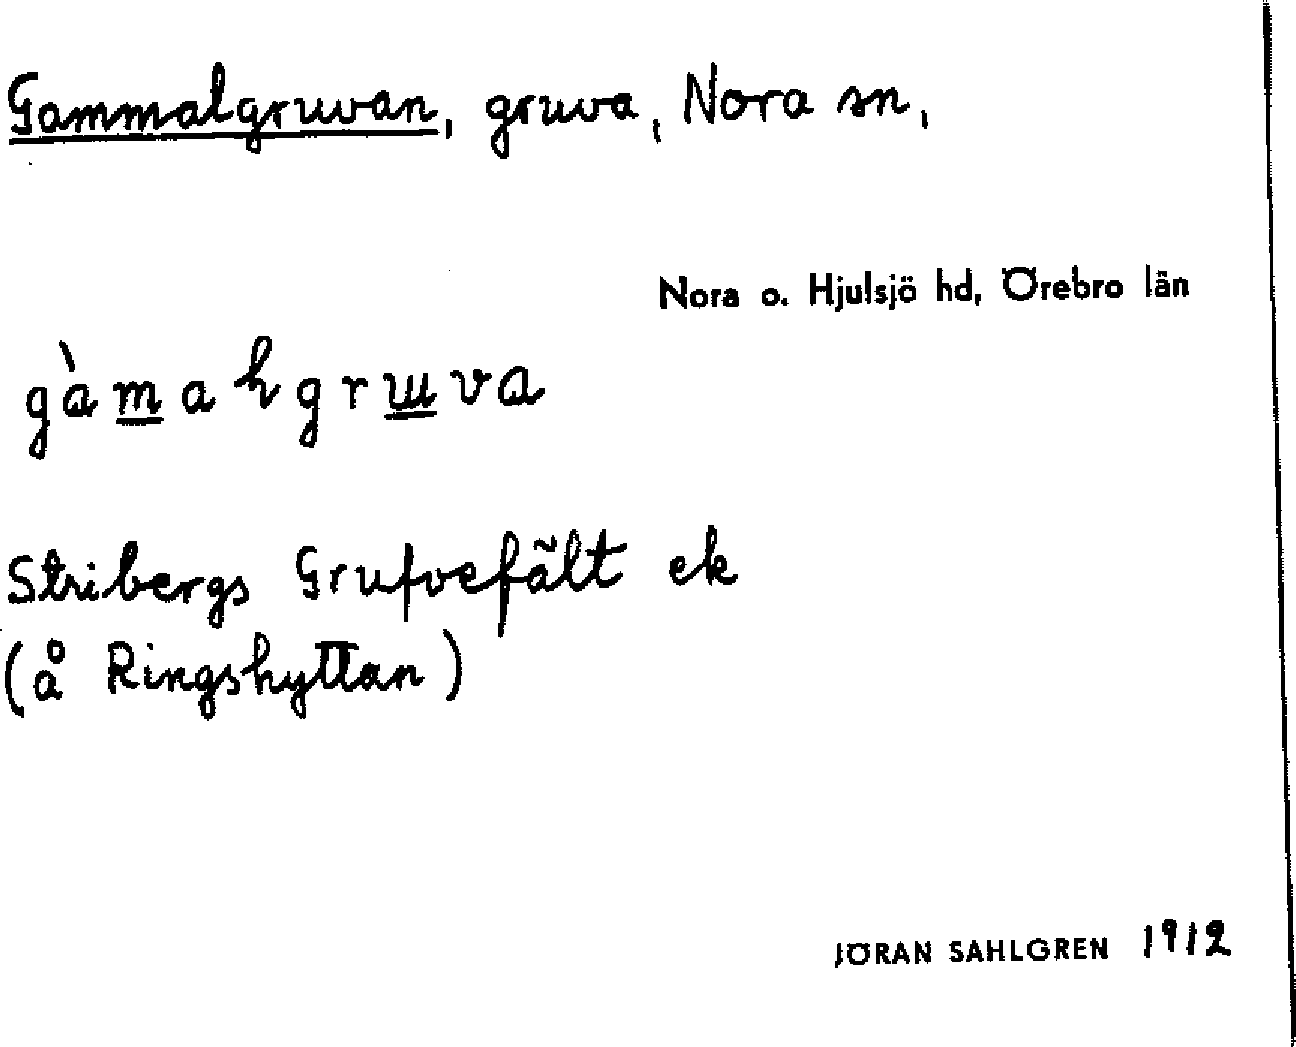 Gammalgruvan, gruva, Nora sn,
Nora o. Hjulsjö hd, Örebro län
gàmahgruva
Stribergs Grufvefält ek
(å Ringshyttan)
JÖRAN SAHLGREN 1912